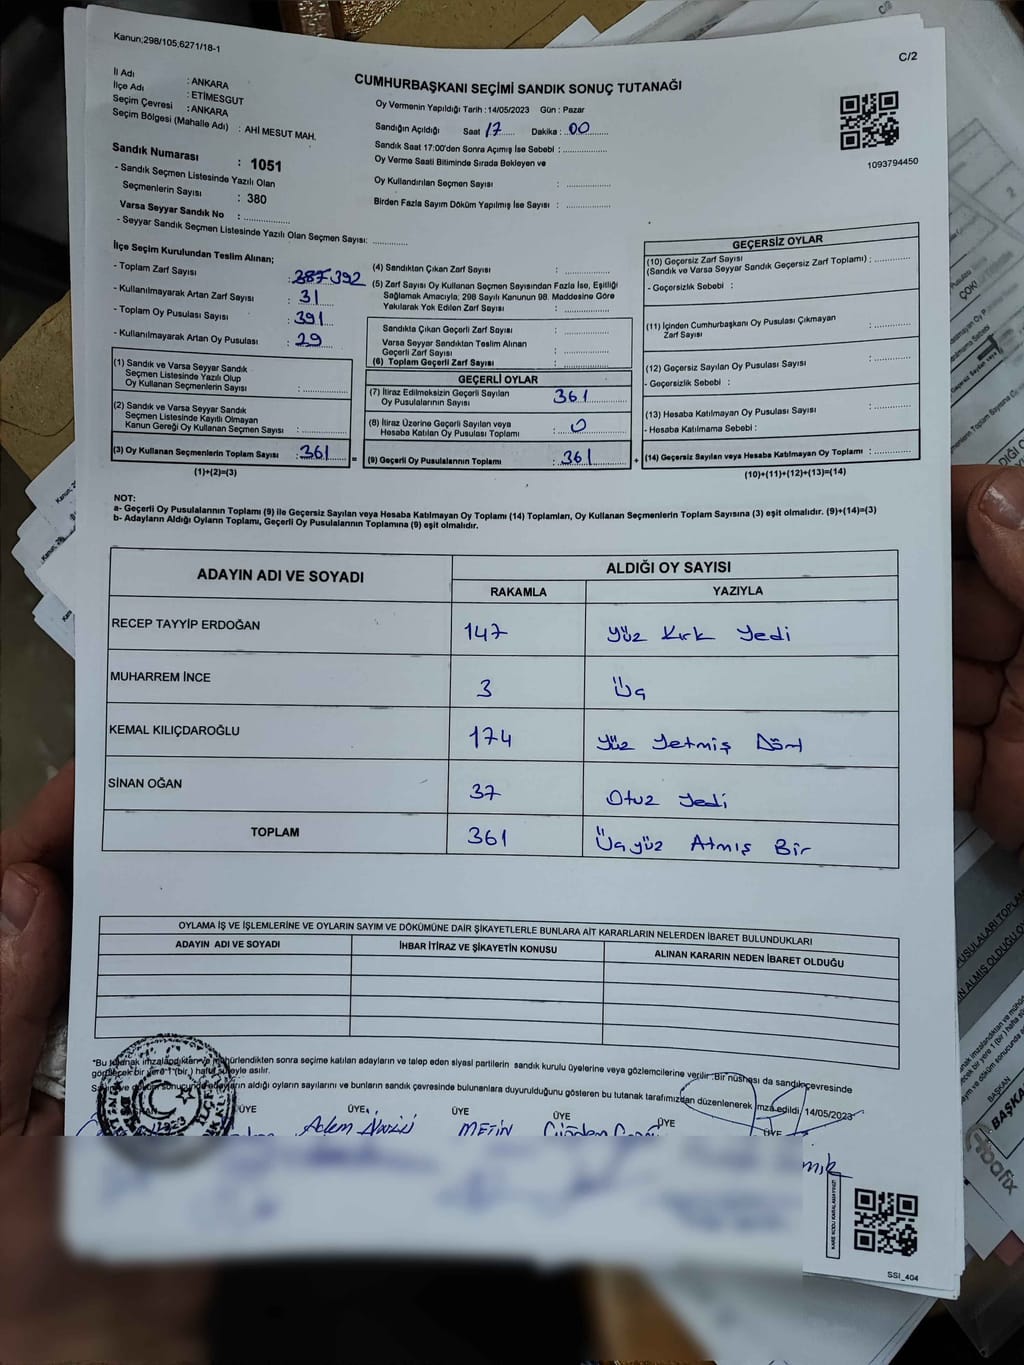 Kanun;298/105,6271/18-1
C/2
İl Adı : ANKARA
İlçe Adı : ETİMESGUT
Seçim Çevresi : ANKARA
Seçim Bölgesi (Mahalle Adı) : AHİ MESUT MAH.
CUMHURBAŞKANI SEÇİMİ SANDIK SONUÇ TUTANAĞI
Oy Vermenin Yapıldığı Tarih : 14/05/2023 Gün : Pazar
Sandığın Açıldığı Saat 17 Dakika : 00
Sandık Saat 17:00'den Sonra Açımış İse Sebebi :
Oy Verme Saati Bitiminde Sırada Bekleyen ve
Oy Kullandırılan Seçmen Sayısı :
Birden Fazla Sayım Döküm Yapılmış İse Sayısı :
1093794450
Sandık Numarası : 1051
- Sandık Seçmen Listesinde Yazılı Olan
Seçmenlerin Sayısı : 380
Varsa Seyyar Sandık No :
- Seyyar Sandık Seçmen Listesinde Yazılı Olan Seçmen Sayısı:
İlçe Seçim Kurulundan Teslim Alınan;
- Toplam Zarf Sayısı : 387 392
- Kullanılmayarak Artan Zarf Sayısı : 31
- Toplam Oy Pusulası Sayısı : 391
- Kullanılmayarak Artan Oy Pusulası : 29
(1) Sandık ve Varsa Seyyar Sandık
Seçmen Listesinde Yazılı Olup
Oy Kullanan Seçmenlerin Sayısı :
(2) Sandık ve Varsa Seyyar Sandık
Seçmen Listesinde Kayıtlı Olmayan
Kanun Gereği Oy Kullanan Seçmen Sayısı :
(3) Oy Kullanan Seçmenlerin Toplam Sayısı : 361 =
(1)+(2)=(3)
(4) Sandıktan Çıkan Zarf Sayısı :
(5) Zarf Sayısı Oy Kullanan Seçmen Sayısından Fazla İse, Eşitliği
Sağlamak Amacıyla; 298 Sayılı Kanunun 98. Maddesine Göre
Yakılarak Yok Edilen Zarf Sayısı :
Sandıkla Çıkan Geçerli Zarf Sayısı :
Varsa Seyyar Sandıktan Teslim Alınan
Geçerli Zarf Sayısı :
(6) Toplam Geçerli Zarf Sayısı :
GEÇERLİ OYLAR
(7) İtiraz Edilmeksizin Geçerli Sayılan
Oy Pusulalarının Sayısı : 361
(8) İtiraz Üzerine Geçerli Sayılan veya
Hesaba Katılan Oy Pusulası Toplamı : 0
(9) Geçerli Oy Pusulalarının Toplamı : 361 +
GEÇERSİZ OYLAR
(10) Geçersiz Zarf Sayısı
(Sandık ve Varsa Seyyar Sandık Geçersiz Zarf Toplamı) :
- Geçersizlik Sebebi :
(11) İçinden Cumhurbaşkanı Oy Pusulası Çıkmayan
Zarf Sayısı :
(12) Geçersiz Sayılan Oy Pusulası Sayısı :
- Geçersizlik Sebebi :
(13) Hesaba Katılmayan Oy Pusulası Sayısı :
- Hesaba Katılmama Sebebi :
(14) Geçersiz Sayılan veya Hesaba Katılmayan Oy Toplamı :
(10)+(11)+(12)+(13)=(14)
NOT:
a- Geçerli Oy Pusulalarının Toplamı (9) ile Geçersiz Sayılan veya Hesaba Katılmayan Oy Toplamı (14) Toplamları, Oy Kullanan Seçmenlerin Toplam Sayısına (3) eşit olmalıdır. (9)+(14)=(3)
b- Adayların Aldığı Oyların Toplamı, Geçerli Oy Pusulalarının Toplamına (9) eşit olmalıdır.
ADAYIN ADI VE SOYADI
ALDIĞI OY SAYISI
RAKAMLA YAZIYLA
RECEP TAYYİP ERDOĞAN 147 Yüz Kırk Yedi
MUHARREM İNCE 3 Üç
KEMAL KILIÇDAROĞLU 174 Yüz Yetmiş Dört
SİNAN OĞAN 37 Otuz Yedi
TOPLAM 361 Üçyüz Atmış Bir
OYLAMA İŞ VE İŞLEMLERİNE VE OYLARIN SAYIM VE DÖKÜMÜNE DAİR ŞİKAYETLERLE BUNLARA AİT KARARLARIN NELERDEN İBARET BULUNDUKLARI
ADAYIN ADI VE SOYADI İHBAR İTİRAZ VE ŞİKAYETİN KONUSU ALINAN KARARIN NEDEN İBARET OLDUĞU
*Bu tutanak imzalandıktan ve mühürlendikten sonra seçime katılan adayların ve talep eden siyasi partilerin sandık kurulu üyelerine veya gözlemcilerine verilir. Bir nüshası da sandık çevresinde
görülecek bir yere 1 (bir ) hafta süreyle asılır.
aldığı oyların sayılarını ve bunların sandık çevresinde bulunanlara duyurulduğunu gösteren bu tutanak tarafımızdan düzenlenerek imza edildi. 14/05/2023
ÜYE ÜYE ÜYE ÜYE ÜYE ÜYE
Adem METİN
KARE KODU KARALAMAYINIZ!
SSI_404